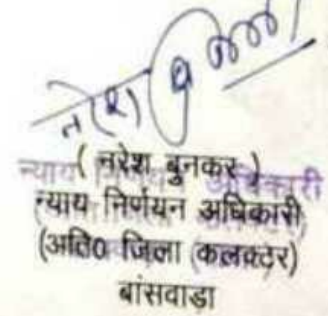 ( नरेश बुनकर )
न्याय निर्णयन अधिकारी
(अति0 जिला कलक्टर)
बांसवाडा